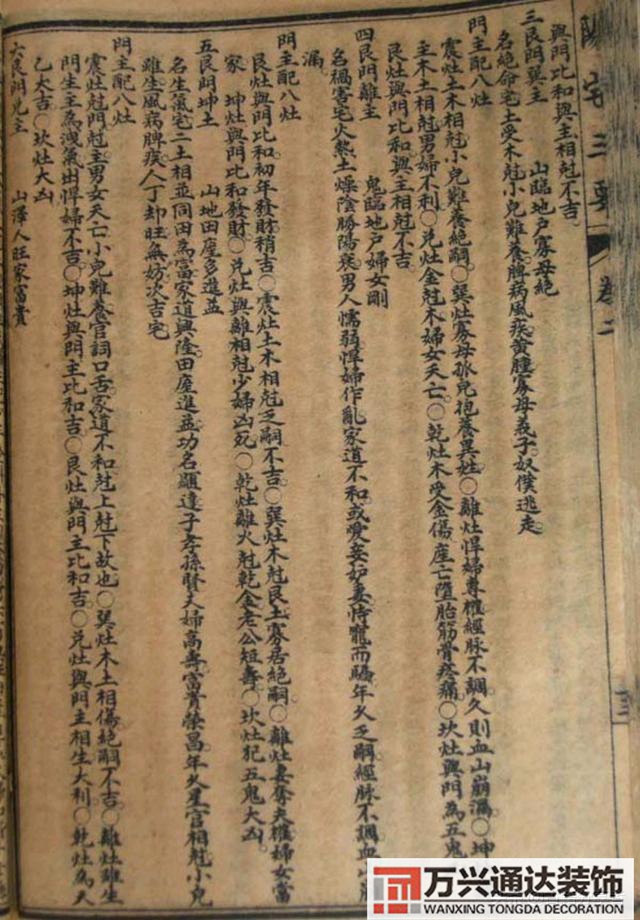 陽宅三要 卷二
與門比和與主相尅不吉
三艮門巽主 山臨地戶寡母絕
名絕命宅土受木尅小兒難養脾病風疾黃腫寡母義子奴僕逃走
門主配八灶
震灶土木相尅小兒難養絕嗣〇巽灶寡母孤兒抱養異姓〇離灶悍婦尊權經脈不調久則血山崩漏〇坤
主木土相尅男婦不利〇兌灶金尅木婦女夭亡〇乾灶木受金傷產亡墮胎筋骨疼痛〇坎灶與門為五鬼
艮灶與門比和與主相尅不吉
四艮門離主 鬼臨地戶婦女剛
名禍害宅火熱土燥陰勝陽衰男人懦弱悍婦作亂家道不和或愛妾妒妻恃寵而驕年久乏嗣經脈不調血山
漏
門主配八灶
艮灶與門比和初年發財稍吉〇震灶土木相尅乏嗣不吉〇巽灶木尅艮土寡居絕嗣〇離灶妻奪夫權婦女當
家 坤灶與門比和發財〇兌灶與離相尅少婦凶死〇乾灶離火尅乾金老公短壽〇坎灶犯五鬼大凶
五艮門坤主 山地田產多進益
名生氣宅二土相並同田為富家道興隆田產進益功名顯達子孝孫賢夫婦高壽富貴榮昌年久星宮相尅小兒
雖生風病脾疾人丁却旺無妨次吉宅
門主配八灶
震灶尅門尅主男女夭亡小兒難養官詞口舌家道不和尅上尅下故也〇巽灶木土相傷絕嗣不吉〇離灶雖生
門生主為洩氣出悍婦不吉〇坤灶與門主比和吉〇艮灶與門主比和吉〇兌灶與門主相生大利〇乾灶為天
乙大吉〇坎灶大凶
六艮門兌主 山澤人旺家富貴
万兴通达装饰
WANXING TONGDA DECORATION